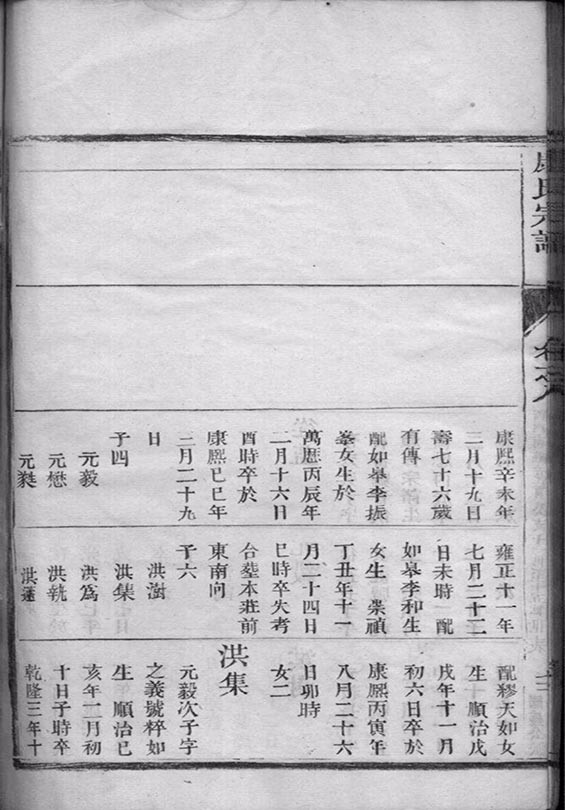 氏宗譜
康熙辛未年
三月十九日
壽七十六歲
有傳
配如皋李振
峯女生於
萬曆丙辰年
二月十六日
酉時卒於
康熙己巳年
三月二十九
日
子四
元毅
元懋
元
雍正十一年
七月二十二
日未時 配
如皋李和生
女生 崇禎
丁丑年十一
月二十四日
巳時卒失考
台塟本莊前
東南向
子六
洪澍
洪集
洪爲
洪
洪運
配繆天如女
生 順治戊
戌年十一月
初六日卒於
康熙丙寅年
八月二十六
日卯時
女二
洪集
元毅次子字
之義號粹如
生 順治己
亥年二月初
十日子時卒
乾隆三年十